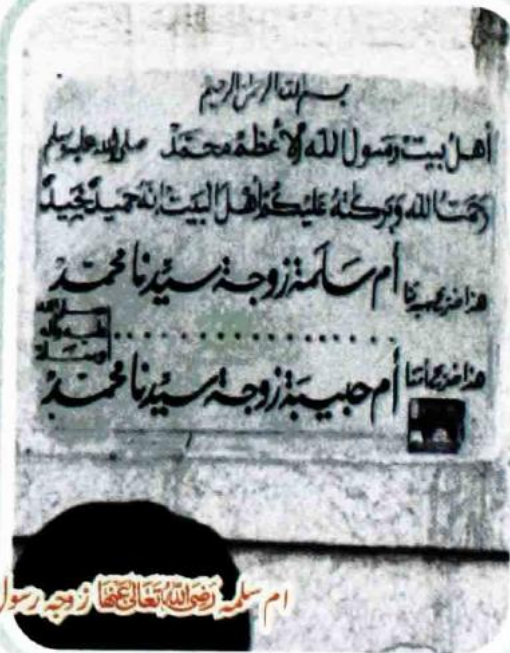 بسم الله الرحمن الرحيم
أهل بيت رسول الله الأعظم محمد صلى الله عليه وسلم
رحمة الله وبركاته عليكم أهل البيت إنه حميد مجيد
هذا ضريح أم سلمة زوجة سيدنا محمد
صلى الله عليه وسلم
هذا ضريح أمنا أم حبيبة زوجة سيدنا محمد
ام سلمہ رَضِیَ اللّٰہُ تَعَالٰی عَنْهَا زوجہ رسول